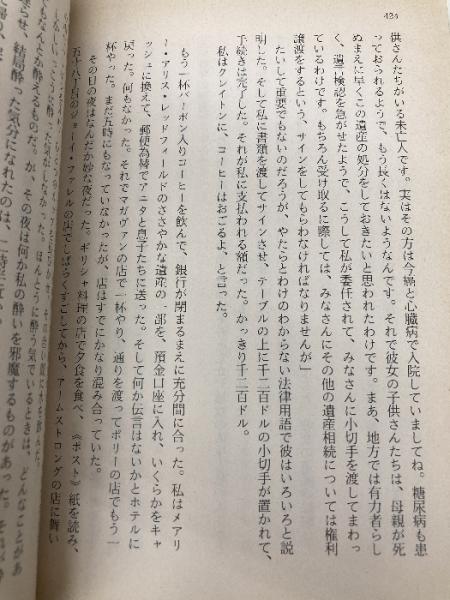 424
供さんたちがいる未亡人です。実はその方は今癌と心臓病で入院していましてね。糖尿病も患
っておられるようで、もう長くはないようなんです。それで彼女の子供さんたちは、母親が死
ぬまえに早くこの遺産の処分をしておきたいと思われたわけです。まあ、地方では有力者らし
く、遺言検認を急がせたようで、こうして私が委任されて、みなさんに小切手を渡してまわっ
ているわけです。もちろん受け取りに際しては、みなさんにその他の遺産相続については権利
譲渡をするという、サインをしてもらわなければなりませんが」
たいして重要でもないのだろうが、やたらとわけのわからない法律用語で彼はいろいろと説
明した。そして私に書類を渡してサインさせ、テーブルの上に千二百ドルの小切手が置かれて、
手続きは完了した。それが私に支払われる額だった。かっきり千二百ドル。
私はクレイトンに、コーヒーはおごるよ、と言った。
もう一杯バーボン入りコーヒーを飲んで、銀行が閉まるまえに充分間に合った。私はメアリ
ー・アリス・レッドフィールドのささやかな遺産の一部を、預金口座に入れ、いくらかをキャ
ッシュに換えて、郵便為替でアニタと息子たちに送った。そして何か伝言はないかとホテルに
戻った。何もなかった。それでマガヴァンの店で一杯やり、通りを渡ってポリーの店でもう一
杯やった。まだ五時にもなっていなかったが、店はすでにかなり混み合っていた。
その日の夜はなんだか妙な夜だった。ギリシャ料理の店で夕食を食べ、《ポスト》紙を読み、
五十八丁目のジョーイ・ファレルの店でしばらくすごしてから、アームストロングの店に舞い